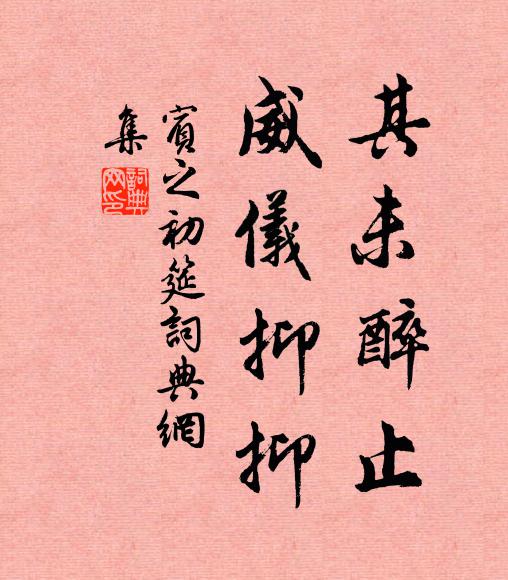 其未醉止
威儀抑抑
賓之初筵詞典網
集
詞典
网印